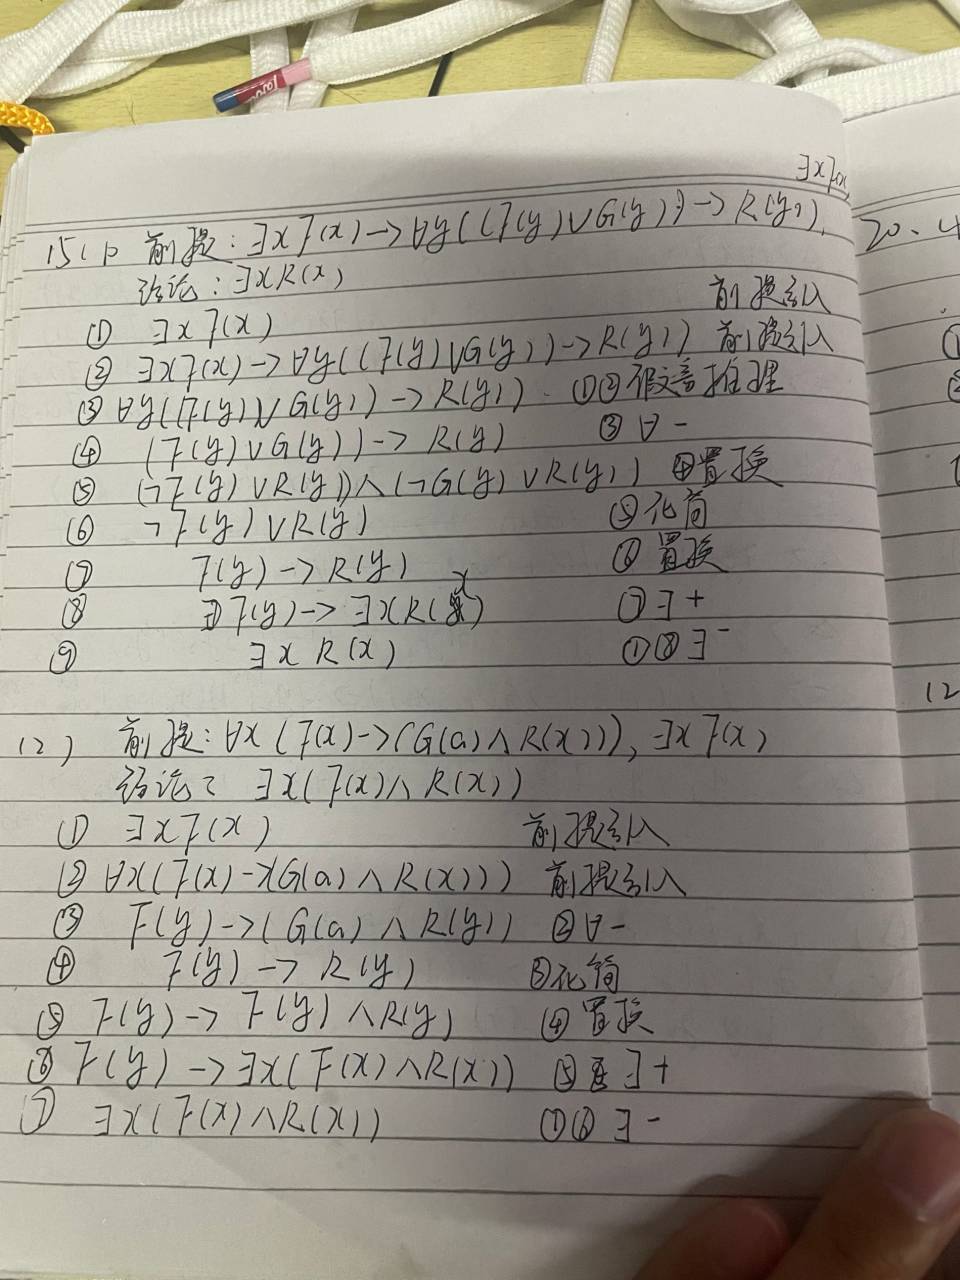 ∃xF(x)
15(1) 前提:∃xF(x)→∀y((F(y)∨G(y))→R(y)),
结论:∃xR(x)
① ∃xF(x) 前提引入
② ∃xF(x)→∀y((F(y)∨G(y))→R(y)) 前提引入
③ ∀y(F(y)∨G(y))→R(y)). ①②假言推理
④ (F(y)∨G(y))→R(y) ③∀-
⑤ (¬F(y)∨R(y))∧(¬G(y)∨R(y)) ④置换
⑥ ¬F(y)∨R(y) ⑤化简
⑦ F(y)→R(y) ⑥置换
⑧ F(y)→∃xR(x) ⑦∃+
⑨ ∃xR(x) ①⑧∃-
(2) 前提:∀x(F(x)→(G(a)∧R(x))),∃xF(x)
结论: ∃x(F(x)∧R(x))
① ∃xF(x) 前提引入
② ∀x(F(x)→(G(a)∧R(x))) 前提引入
③ F(y)→(G(a)∧R(y)) ②∀-
④ F(y)→R(y) ③化简
⑤ F(y)→F(y)∧R(y) ④置换
⑥ F(y)→∃x(F(x)∧R(x)) ⑤∃+
⑦ ∃x(F(x)∧R(x)) ①⑥∃-
20、
(2